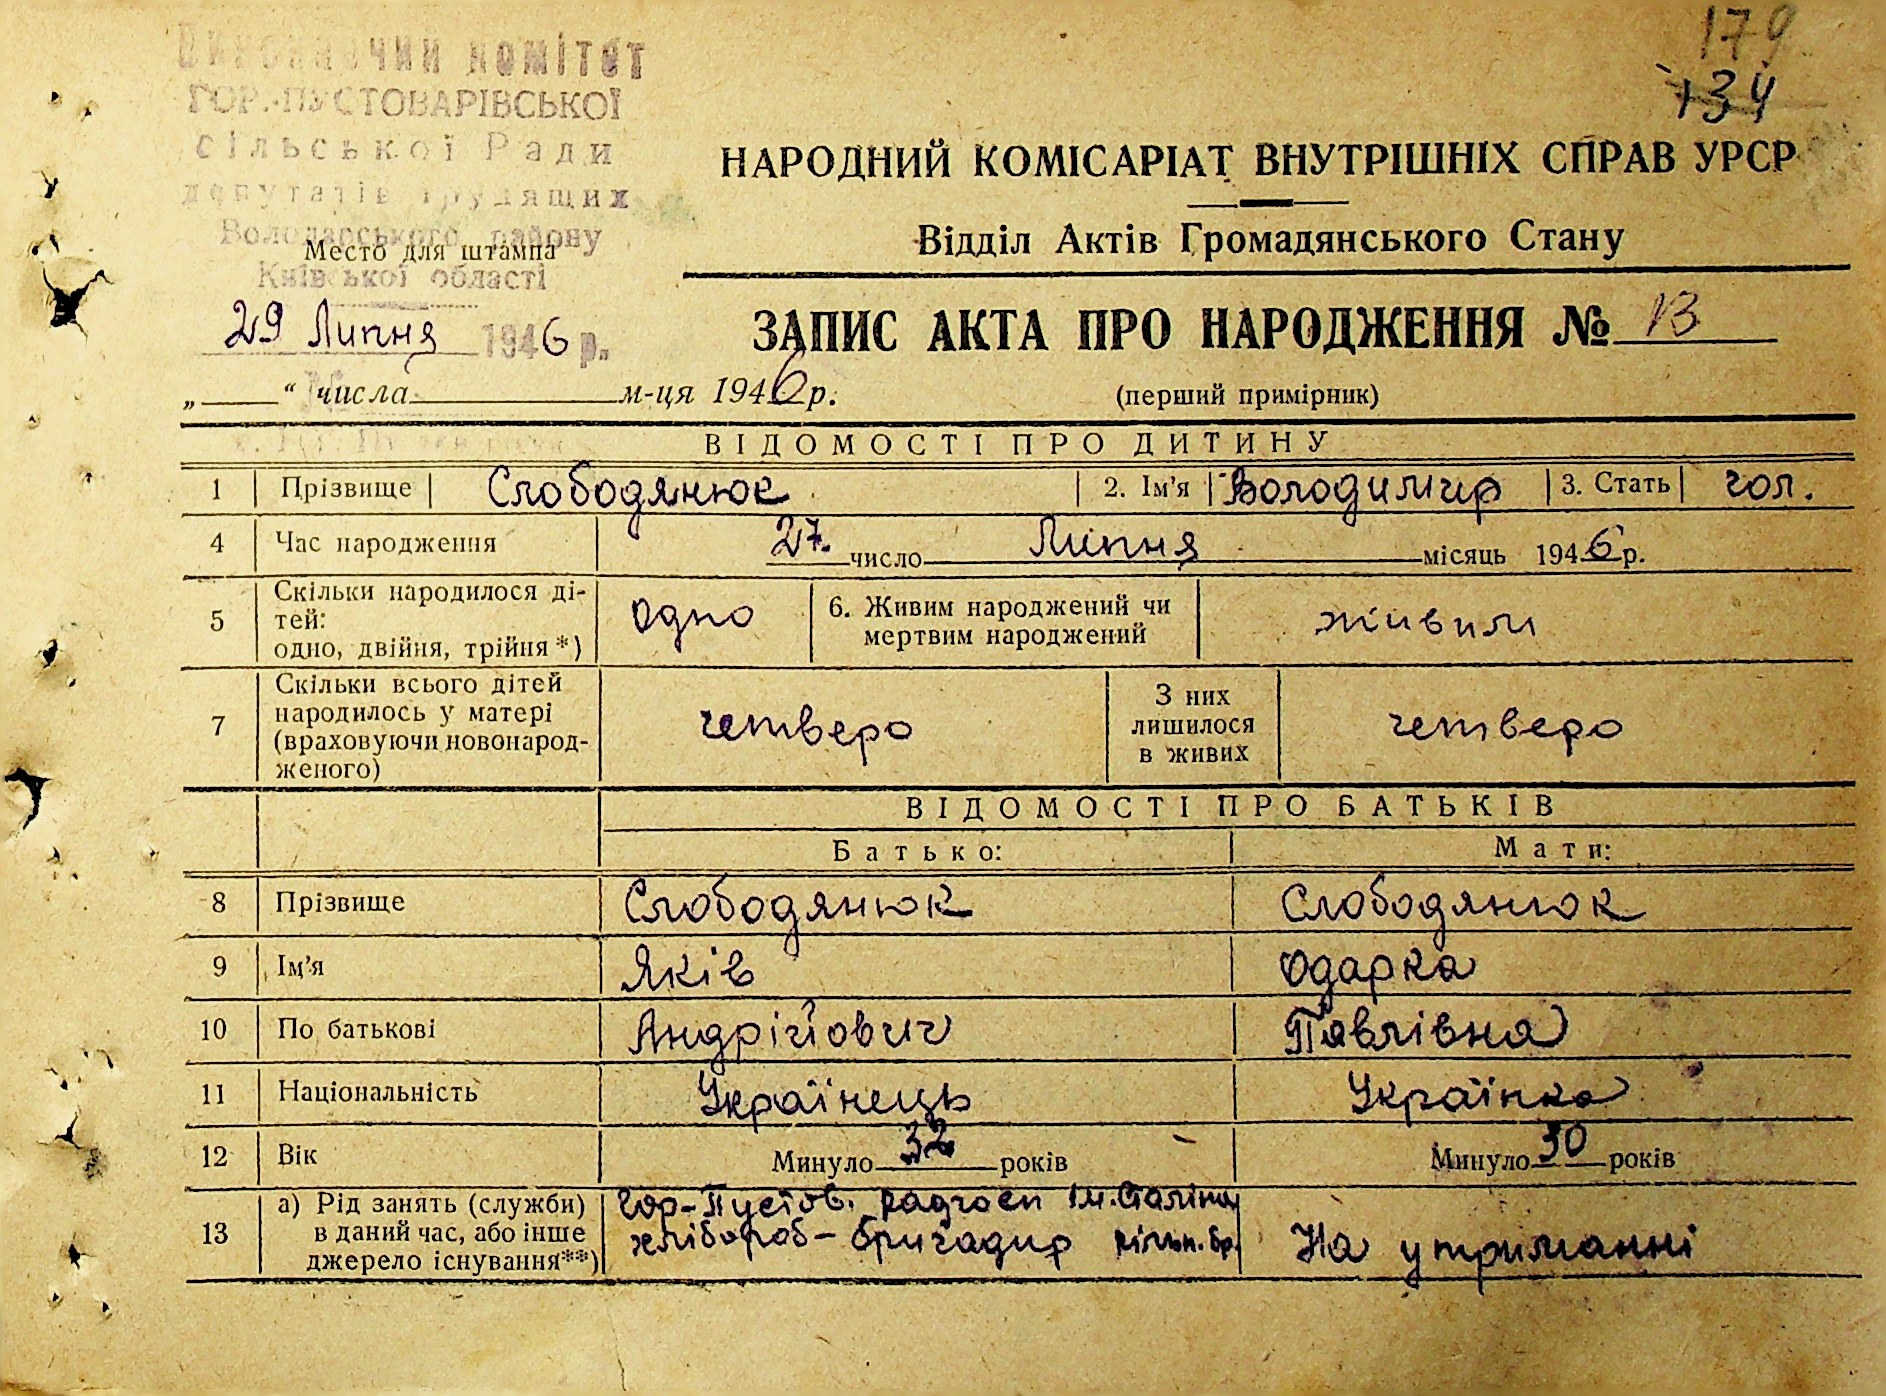 179
134
Виконавчий комітет
ГОР.-ПУСТОВАРІВСЬКОЇ
сільської Ради
депутатів трудящих
Володарського району
Место для штампа
Київської області
29 Липня 1946 р.
„ “ числа м-ця 1946 р.
НАРОДНИЙ КОМІСАРІАТ ВНУТРІШНІХ СПРАВ УРСР
Відділ Актів Громадянського Стану
ЗАПИС АКТА ПРО НАРОДЖЕННЯ № 13
(перший примірник)
ВІДОМОСТІ ПРО ДИТИНУ
1 Прізвище Слободянюк 2. Ім'я Володимир 3. Стать чол.
4 Час народження 27. число Липня місяць 1946 р.
5 Скільки народилося ді-
тей:
одно, двійня, трійня *) Одно 6. Живим народжений чи
мертвим народжений живим
7 Скільки всього дітей
народилось у матері
(враховуючи новонарод-
женого) четверо З них
лишилося
в живих четверо
ВІДОМОСТІ ПРО БАТЬКІВ
Батько: Мати:
8 Прізвище Слободянюк Слободянюк
9 Ім'я Яків Одарка
10 По батькові Андрійович Павлівна
11 Національність Українець Українка
12 Вік Минуло 32 років Минуло 30 років
13 а) Рід занять (служби)
в даний час, або інше
джерело існування**) Гор-Пустов. радгосп ім. Сталіна
хлібороб - бригадир рільн. бр. На утриманні